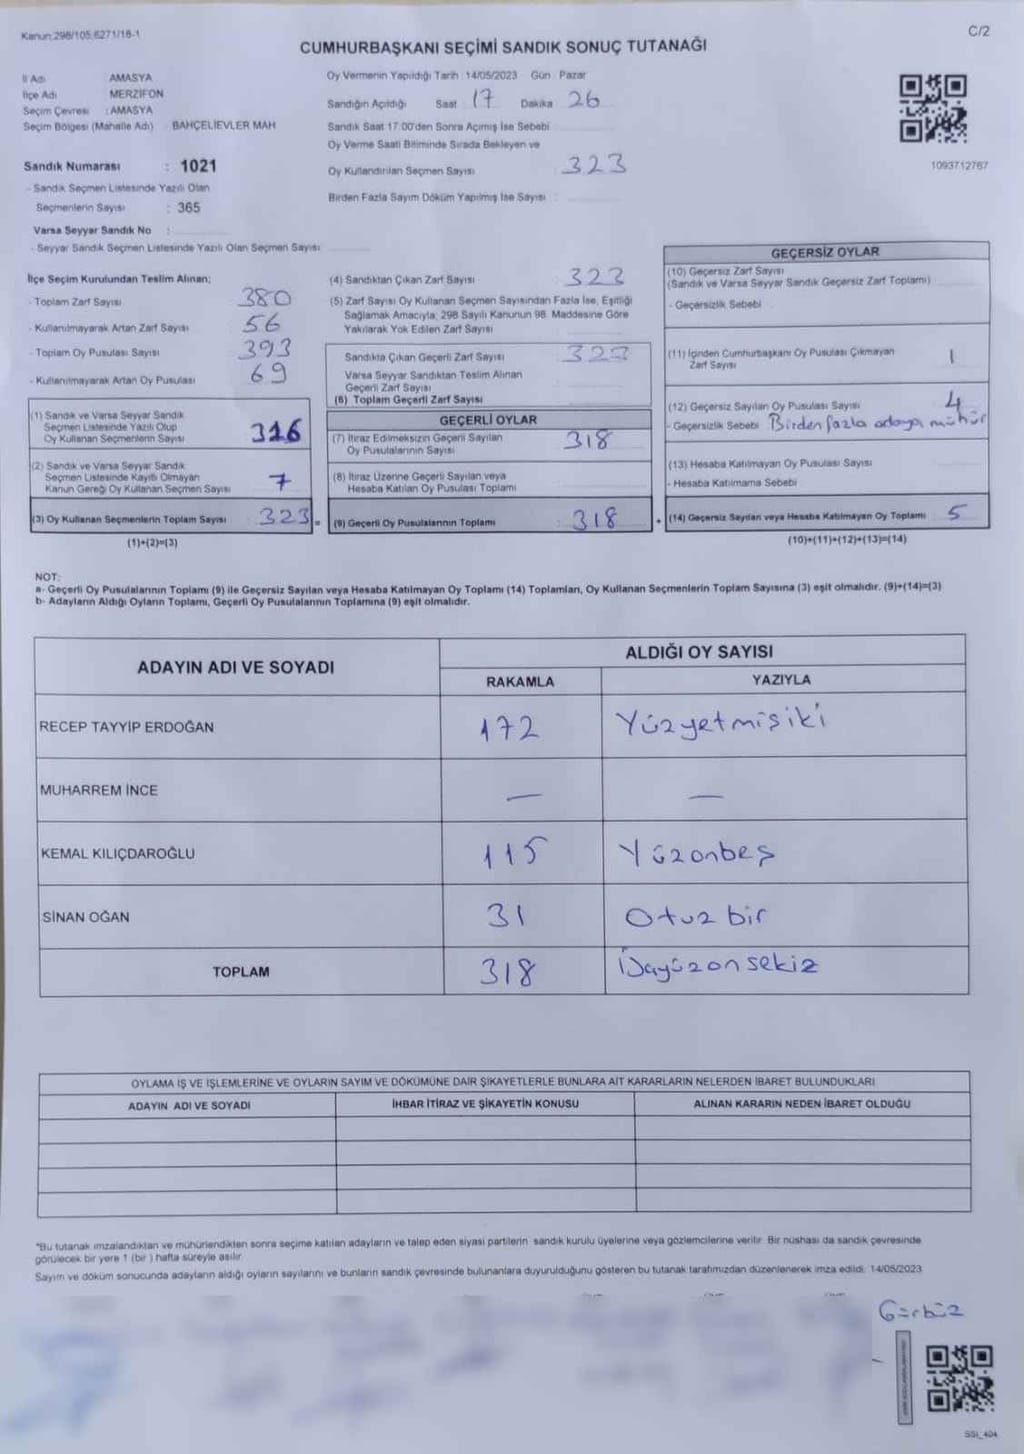 Kanun:298/105,6271/18-1
C/2
CUMHURBAŞKANI SEÇİMİ SANDIK SONUÇ TUTANAĞI
İl Adı AMASYA
İlçe Adı MERZİFON
Seçim Çevresi : AMASYA
Seçim Bölgesi (Mahalle Adı) BAHÇELİEVLER MAH
Oy Vermenin Yapıldığı Tarih :14/05/2023 Gün Pazar
Sandığın Açıldığı Saat 17 Dakika 26
Sandık Saat 17:00'den Sonra Açılmış İse Sebebi
Oy Verme Saati Bitiminde Sırada Bekleyen ve
Oy Kullandırılan Seçmen Sayısı : 323
Birden Fazla Sayım Döküm Yapılmış İse Sayısı :
1093712767
Sandık Numarası : 1021
- Sandık Seçmen Listesinde Yazılı Olan
Seçmenlerin Sayısı : 365
Varsa Seyyar Sandık No :
- Seyyar Sandık Seçmen Listesinde Yazılı Olan Seçmen Sayısı:
İlçe Seçim Kurulundan Teslim Alınan;
- Toplam Zarf Sayısı 380
- Kullanılmayarak Artan Zarf Sayısı 56
- Toplam Oy Pusulası Sayısı 393
- Kullanılmayarak Artan Oy Pusulası 69
(1) Sandık ve Varsa Seyyar Sandık
Seçmen Listesinde Yazılı Olup
Oy Kullanan Seçmenlerin Sayısı 316
(2) Sandık ve Varsa Seyyar Sandık
Seçmen Listesinde Kayıtlı Olmayan
Kanun Gereği Oy Kullanan Seçmen Sayısı 7
(3) Oy Kullanan Seçmenlerin Toplam Sayısı 323 =
(1)+(2)=(3)
(4) Sandıktan Çıkan Zarf Sayısı 323
(5) Zarf Sayısı Oy Kullanan Seçmen Sayısından Fazla İse, Eşitliği
Sağlamak Amacıyla, 298 Sayılı Kanunun 98. Maddesine Göre
Yakılarak Yok Edilen Zarf Sayısı
Sandıkta Çıkan Geçerli Zarf Sayısı 323
Varsa Seyyar Sandıktan Teslim Alınan
Geçerli Zarf Sayısı
(6) Toplam Geçerli Zarf Sayısı
GEÇERLİ OYLAR
(7) İtiraz Edilmeksizin Geçerli Sayılan
Oy Pusulalarının Sayısı 318
(8) İtiraz Üzerine Geçerli Sayılan veya
Hesaba Katılan Oy Pusulası Toplamı
(9) Geçerli Oy Pusulalarının Toplamı 318 +
GEÇERSİZ OYLAR
(10) Geçersiz Zarf Sayısı
(Sandık ve Varsa Seyyar Sandık Geçersiz Zarf Toplamı)
- Geçersizlik Sebebi
(11) İçinden Cumhurbaşkanı Oy Pusulası Çıkmayan
Zarf Sayısı 1
(12) Geçersiz Sayılan Oy Pusulası Sayısı 4
- Geçersizlik Sebebi Birden fazla adaya mühür
(13) Hesaba Katılmayan Oy Pusulası Sayısı
- Hesaba Katılmama Sebebi
(14) Geçersiz Sayılan veya Hesaba Katılmayan Oy Toplamı 5
(10)+(11)+(12)+(13)=(14)
NOT:
a- Geçerli Oy Pusulalarının Toplamı (9) ile Geçersiz Sayılan veya Hesaba Katılmayan Oy Toplamı (14) Toplamları, Oy Kullanan Seçmenlerin Toplam Sayısına (3) eşit olmalıdır. (9)+(14)=(3)
b- Adayların Aldığı Oyların Toplamı, Geçerli Oy Pusulalarının Toplamına (9) eşit olmalıdır.
ADAYIN ADI VE SOYADI
ALDIĞI OY SAYISI
RAKAMLA YAZIYLA
RECEP TAYYİP ERDOĞAN 172 Yüzyetmişiki
MUHARREM İNCE — —
KEMAL KILIÇDAROĞLU 115 Yüzonbeş
SİNAN OĞAN 31 Otuz bir
TOPLAM 318 Üçyüzonsekiz
OYLAMA İŞ VE İŞLEMLERİNE VE OYLARIN SAYIM VE DÖKÜMÜNE DAİR ŞİKAYETLERLE BUNLARA AİT KARARLARIN NELERDEN İBARET BULUNDUKLARI
ADAYIN ADI VE SOYADI İHBAR İTİRAZ VE ŞİKAYETİN KONUSU ALINAN KARARIN NEDEN İBARET OLDUĞU
*Bu tutanak imzalandıktan ve mühürlendikten sonra seçime katılan adayların ve talep eden siyasi partilerin sandık kurulu üyelerine veya gözlemcilerine verilir. Bir nüshası da sandık çevresinde
görülecek bir yere 1 (bir) hafta süreyle asılır.
Sayım ve döküm sonucunda adayların aldığı oyların sayılarını ve bunların sandık çevresinde bulunanlara duyurulduğunu gösteren bu tutanak tarafımızdan düzenlenerek imza edildi. 14/05/2023
Gürbüz
SSİ_404